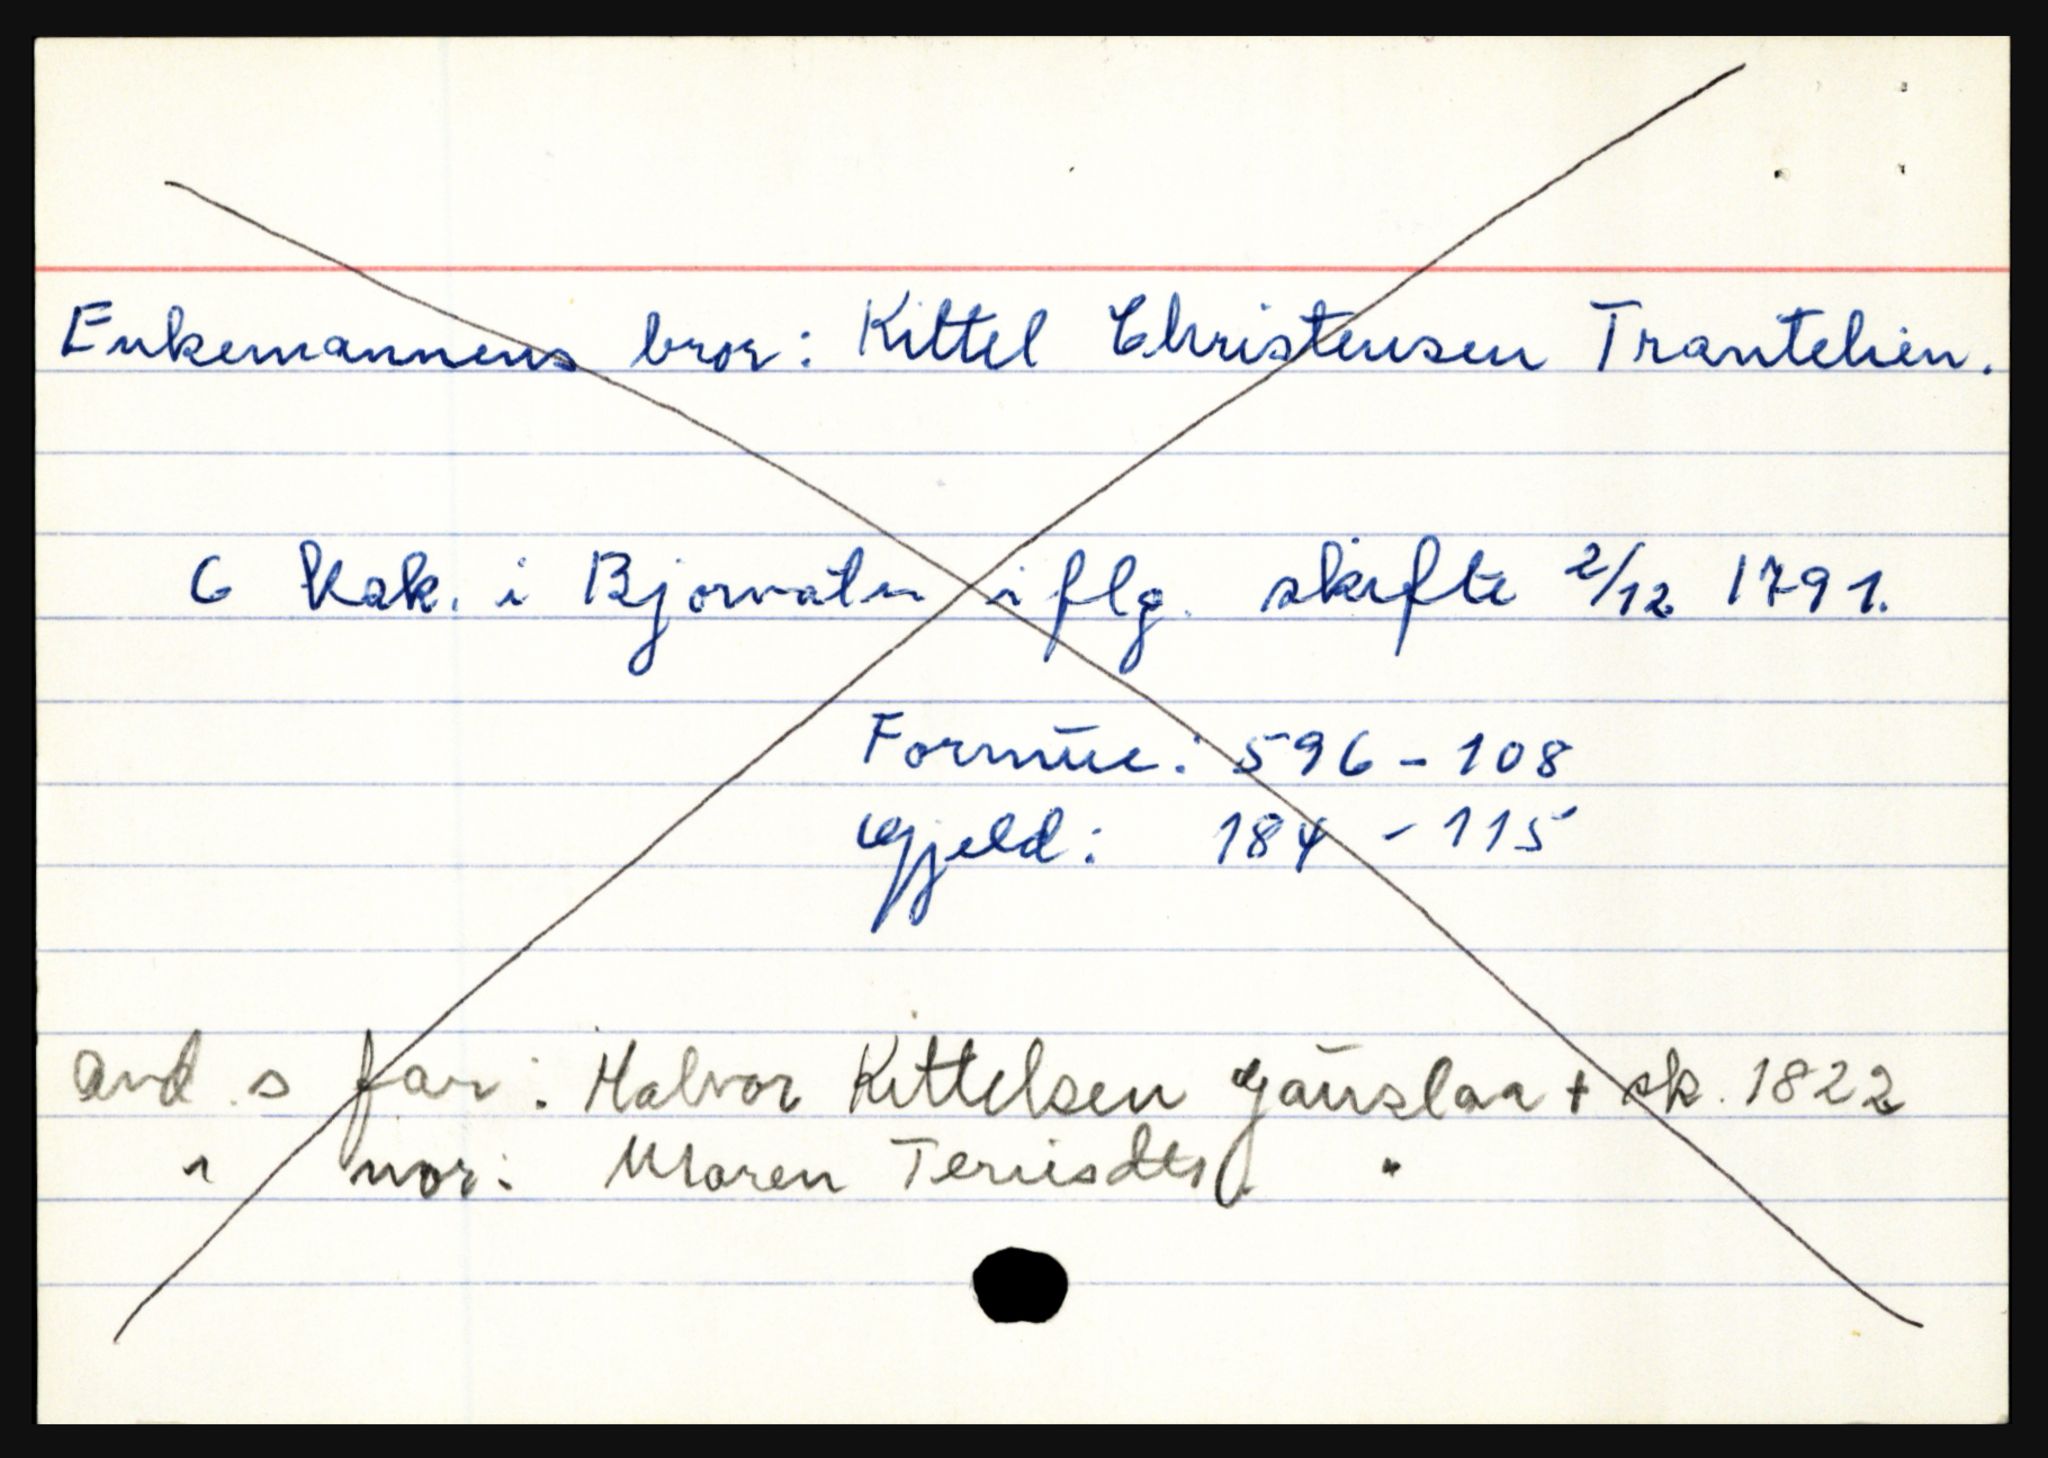 Enkemannens bror: Kittel Christensen Trantelien.
6 kalk. i Bjorvatn iflg. skifte 2/12 1791.
Formúe: 596 - 108
Gjeld: 184 - 115
And.s far: Halvor Kittelsen Gaúslaa + sk. 1822
" mor: Maren Terjesdtr. "